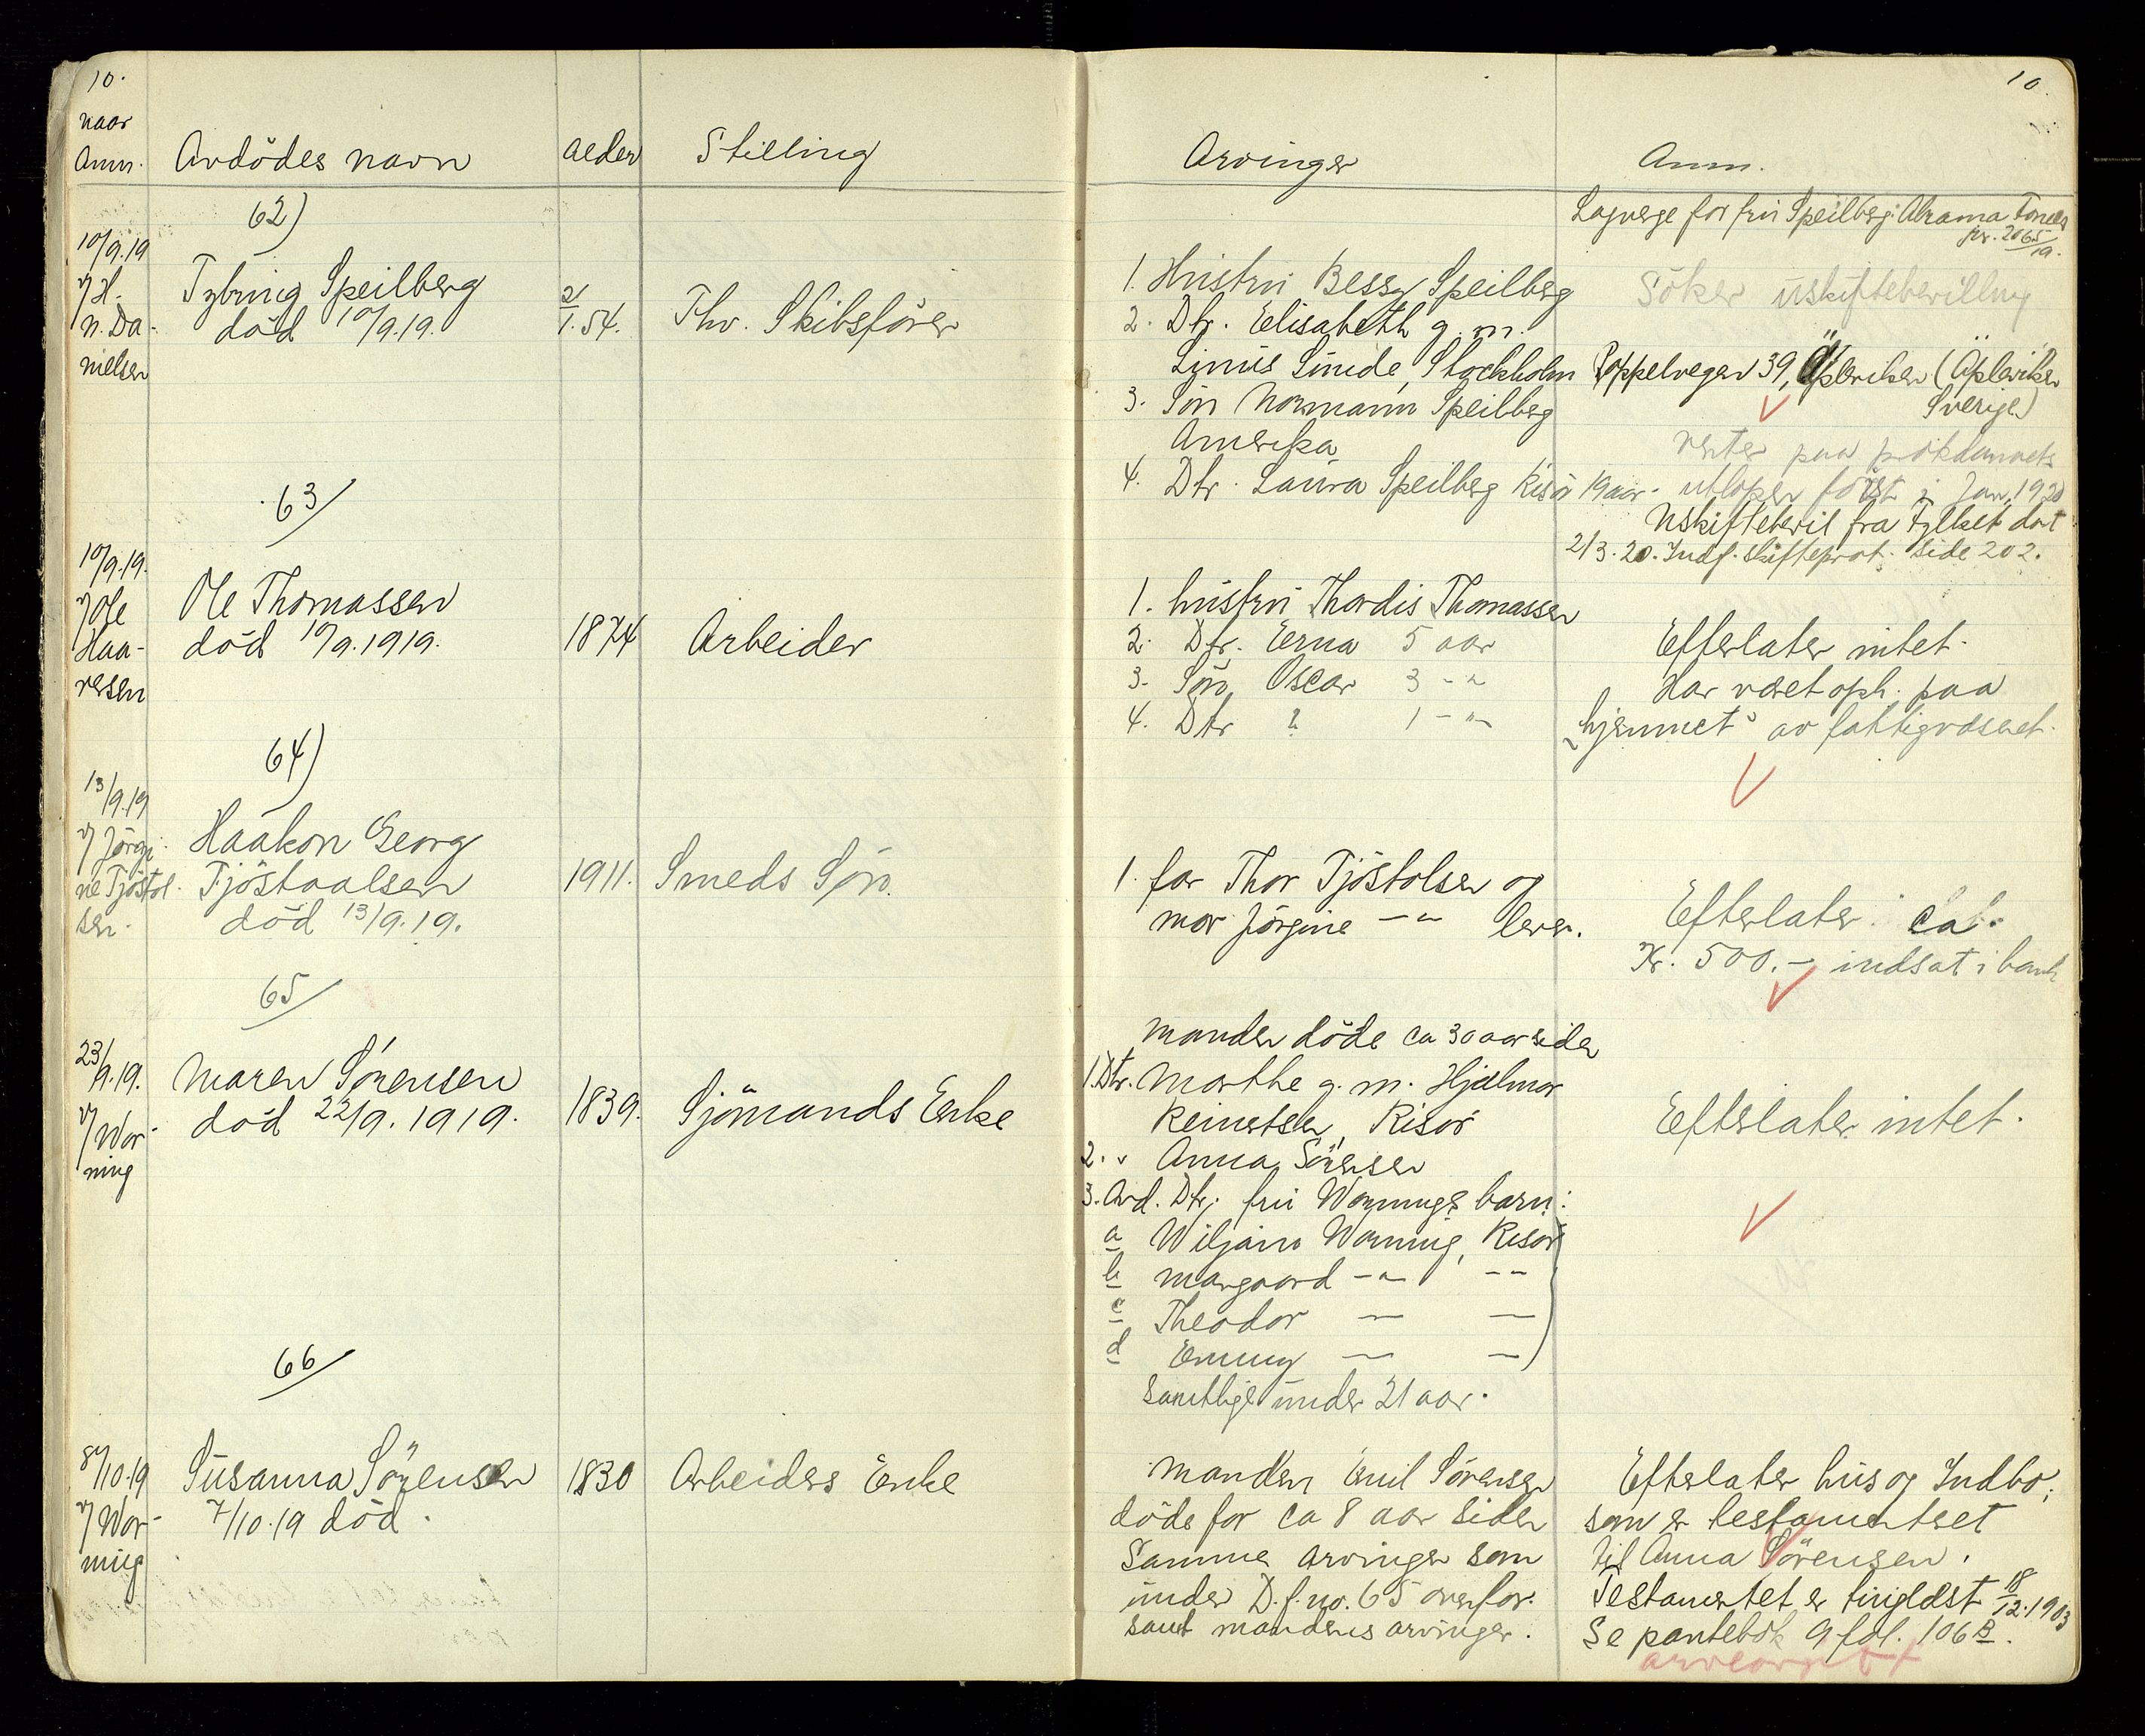 10.
naar
Anm.
Avdödes navn
Alder
Stilling
62)
10/9.19
v/ H.
n. Da-
nielsen
Tybring Speilberg
död 10/9.19.
2/1.54.
Fhv. Skibsförer
63/
10/9.19.
v/ Ole
Haa-
versen
Ole Thomassen
död 10/9.1919.
1874
Arbeider
64)
13/9.19
v/ Jörgi-
ne Tjöstol-
sen.
Haakon Georg
Tjöstaalsen
död 13/9.19.
1911.
Smeds Sön.
65/
23/9.19.
v/ Wor-
ning
Maren Sörensen
död 22/9.1919.
1839.
Sjömands Enke
66/
8/10.19
v/ Wor-
ning
Susanna Sörensen
7/10.19 död.
1830
Arbeiders Enke
10.
Arvinger
Anm.
Lagverge for fru Speilberg:
jr. 2065/19.
1. Hustru Bessy Speilberg
Söker uskiftebevilling
2. Dtr. Elisabeth g. m.
Linus Sunde, Stockholm
Poppelvegen 39, Äpleviken (Äpleviken
Sverige)
3. Sön Normann Speilberg
Amerika
venter paa
4. Dtr. Laura Speilberg Risör 19 aar.
utlöper först i Jan. 1920
Uskiftebevil fra Fylket dat
2/3.20. Indf. skifteprot. side 202.
1. hustru Thordis Thomassen
2. Dtr. Erna 5 aar
3. Sön Oscar 3 - " -
4. Dtr ? 1 - " -
Efterlater intet.
Har været oph. paa
"hjemmet" av fattigvæsenet.
1. far Thor Tjöstolsen og
mor Jörgine - " - lever.
Efterlater ca.
Kr. 500.- indsat i bank
Manden döde ca 30 aar siden
1. Dtr. Marthe g. m. Hjalmar
Reinertsen, Risör
2. " Anna Sörensen
3. Avd. Dtr. fru Wornings barn:
a Wiljam Worning, Risör
b Margaard - " - - " -
c Theodor - " - - " -
d Emmy - " - - " -
samtlige under 21 aar.
Efterlater intet.
Manden Emil Sörensen
döde for ca 8 aar siden
Samme arvinger som
under D.f.no. 65 ovenfor.
samt mandens arvinger.
Efterlater hus og Indbo,
som er testamentert
til Anna Sörensen.
Testamentet er tinglæst 18/12.1903
Se pantebok 9 fol. 106 B.